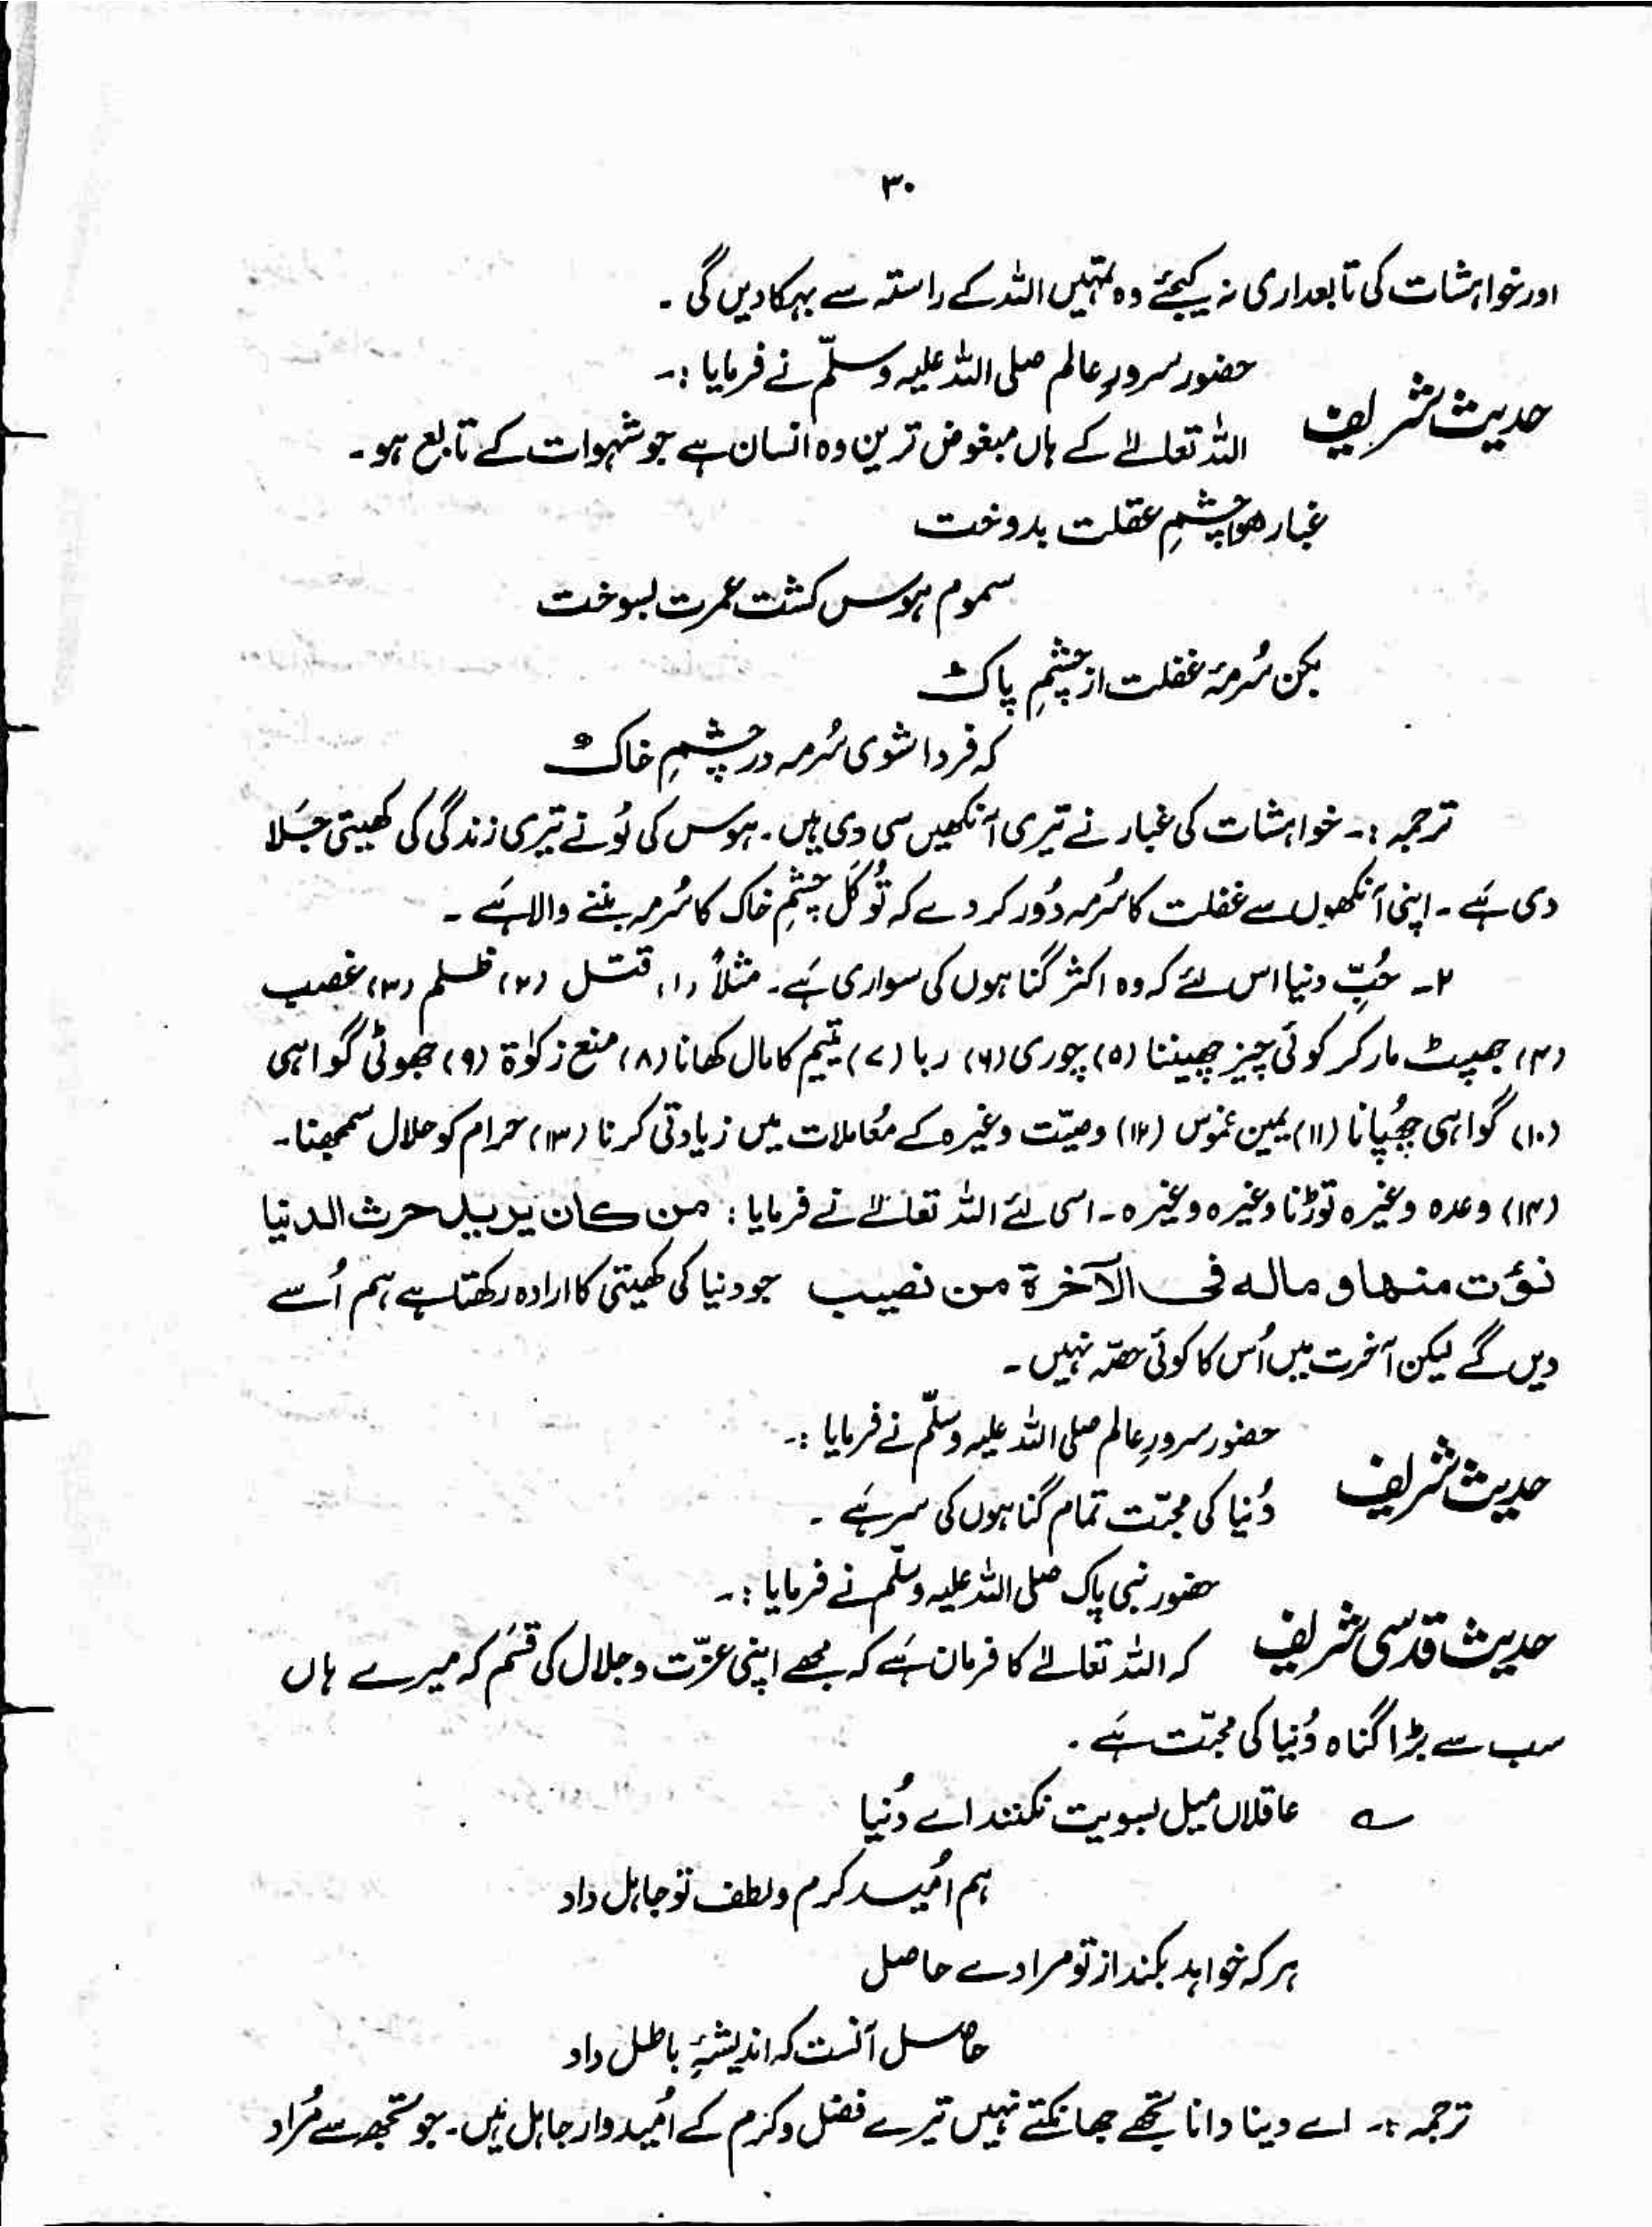 ۳۰
اور خواہشات کی تابعداری نہ کیجئے وہ تمہیں اللہ کے راستہ سے بہکا دیں گی ۔
حدیث شریف
حضور سرورِ عالم صلی اللہ علیہ وسلّم نے فرمایا :۔
اللہ تعالےٰ کے ہاں مبغوض ترین وہ انسان ہے جو شہوات کے تابع ہو۔
غبار ھوا چشمِ عقلت بدوخت
سموم ہوس کشت عمرت بسوخت
بکن سُرمۂ غفلت از چشمِ پاک
کہ فردا شوی سُرمہ در چشمِ خاک
ترجمہ :۔ خواہشات کی غبار نے تیری آنکھیں سی دی ہیں۔ ہوس کی لُو نے تیری زندگی کی کھیتی جَلا
دی ہَے ۔ اپنی آنکھوں سے غفلت کا سُرمہ دُور کر دے کہ تُو کَل چشمِ خاک کا سُرمہ بننے والا ہَے ۔
۲۔ حُبِّ دنیا اس لئے کہ وہ اکثر گناہوں کی سواری ہَے۔ مثلاً (۱) قتل (۲) ظلم (۳) غصب
(۴) جھپٹ مار کر کوئی چیز چھیننا (۵) چوری (۶) ربا (۷) یتیم کا مال کھانا (۸) منع زکوٰۃ (۹) جھوٹی گواہی
(۱۰) گواہی چھُپانا (۱۱) یمین غموس (۱۲) وصیّت وغیرہ کے مُعاملات میں زیادتی کرنا (۱۳) حرام کو حلال سمجھنا۔
(۱۴) وعدہ وغیرہ توڑنا وغیرہ وغیرہ ۔ اسی لئے اللہ تعالےٰ نے فرمایا : من کان یرید حرث الدنیا
نؤت منھا و مالہ فی الآخرۃ من نصیب جو دنیا کی کھیتی کا ارادہ رکھتا ہے ہم اُسے
دیں گے لیکن آخرت میں اُس کا کوئی حصّہ نہیں ۔
حدیث شریف
حضور سرورِ عالم صلی اللہ علیہ وسلّم نے فرمایا :۔
دُنیا کی محبّت تمام گناہوں کی سر ہَے ۔
حدیث قدسی شریف
حضور نبی پاک صلی اللہ علیہ وسلّم نے فرمایا :۔
کہ اللہ تعالےٰ کا فرمان ہَے کہ مجھے اپنی عزّت و جلال کی قسَم کہ میرے ہاں
سب سے بڑا گناہ دُنیا کی محبّت ہَے ۔
؎ عاقلاں میل بسویت نکنند اے دُنیا
ہم اُمید کرم و لطف تو جاہل داد
ہر کہ خواہد بکند از تو مرادے حاصل
حاصل آنست کہ اندیشۂِ باطل داد
ترجمہ :۔ اے دینا دانا تجھے جھانکتے نہیں تیرے فضل و کرم کے اُمیدوار جاہل ہَیں۔ جو تُجھ سے مُراد